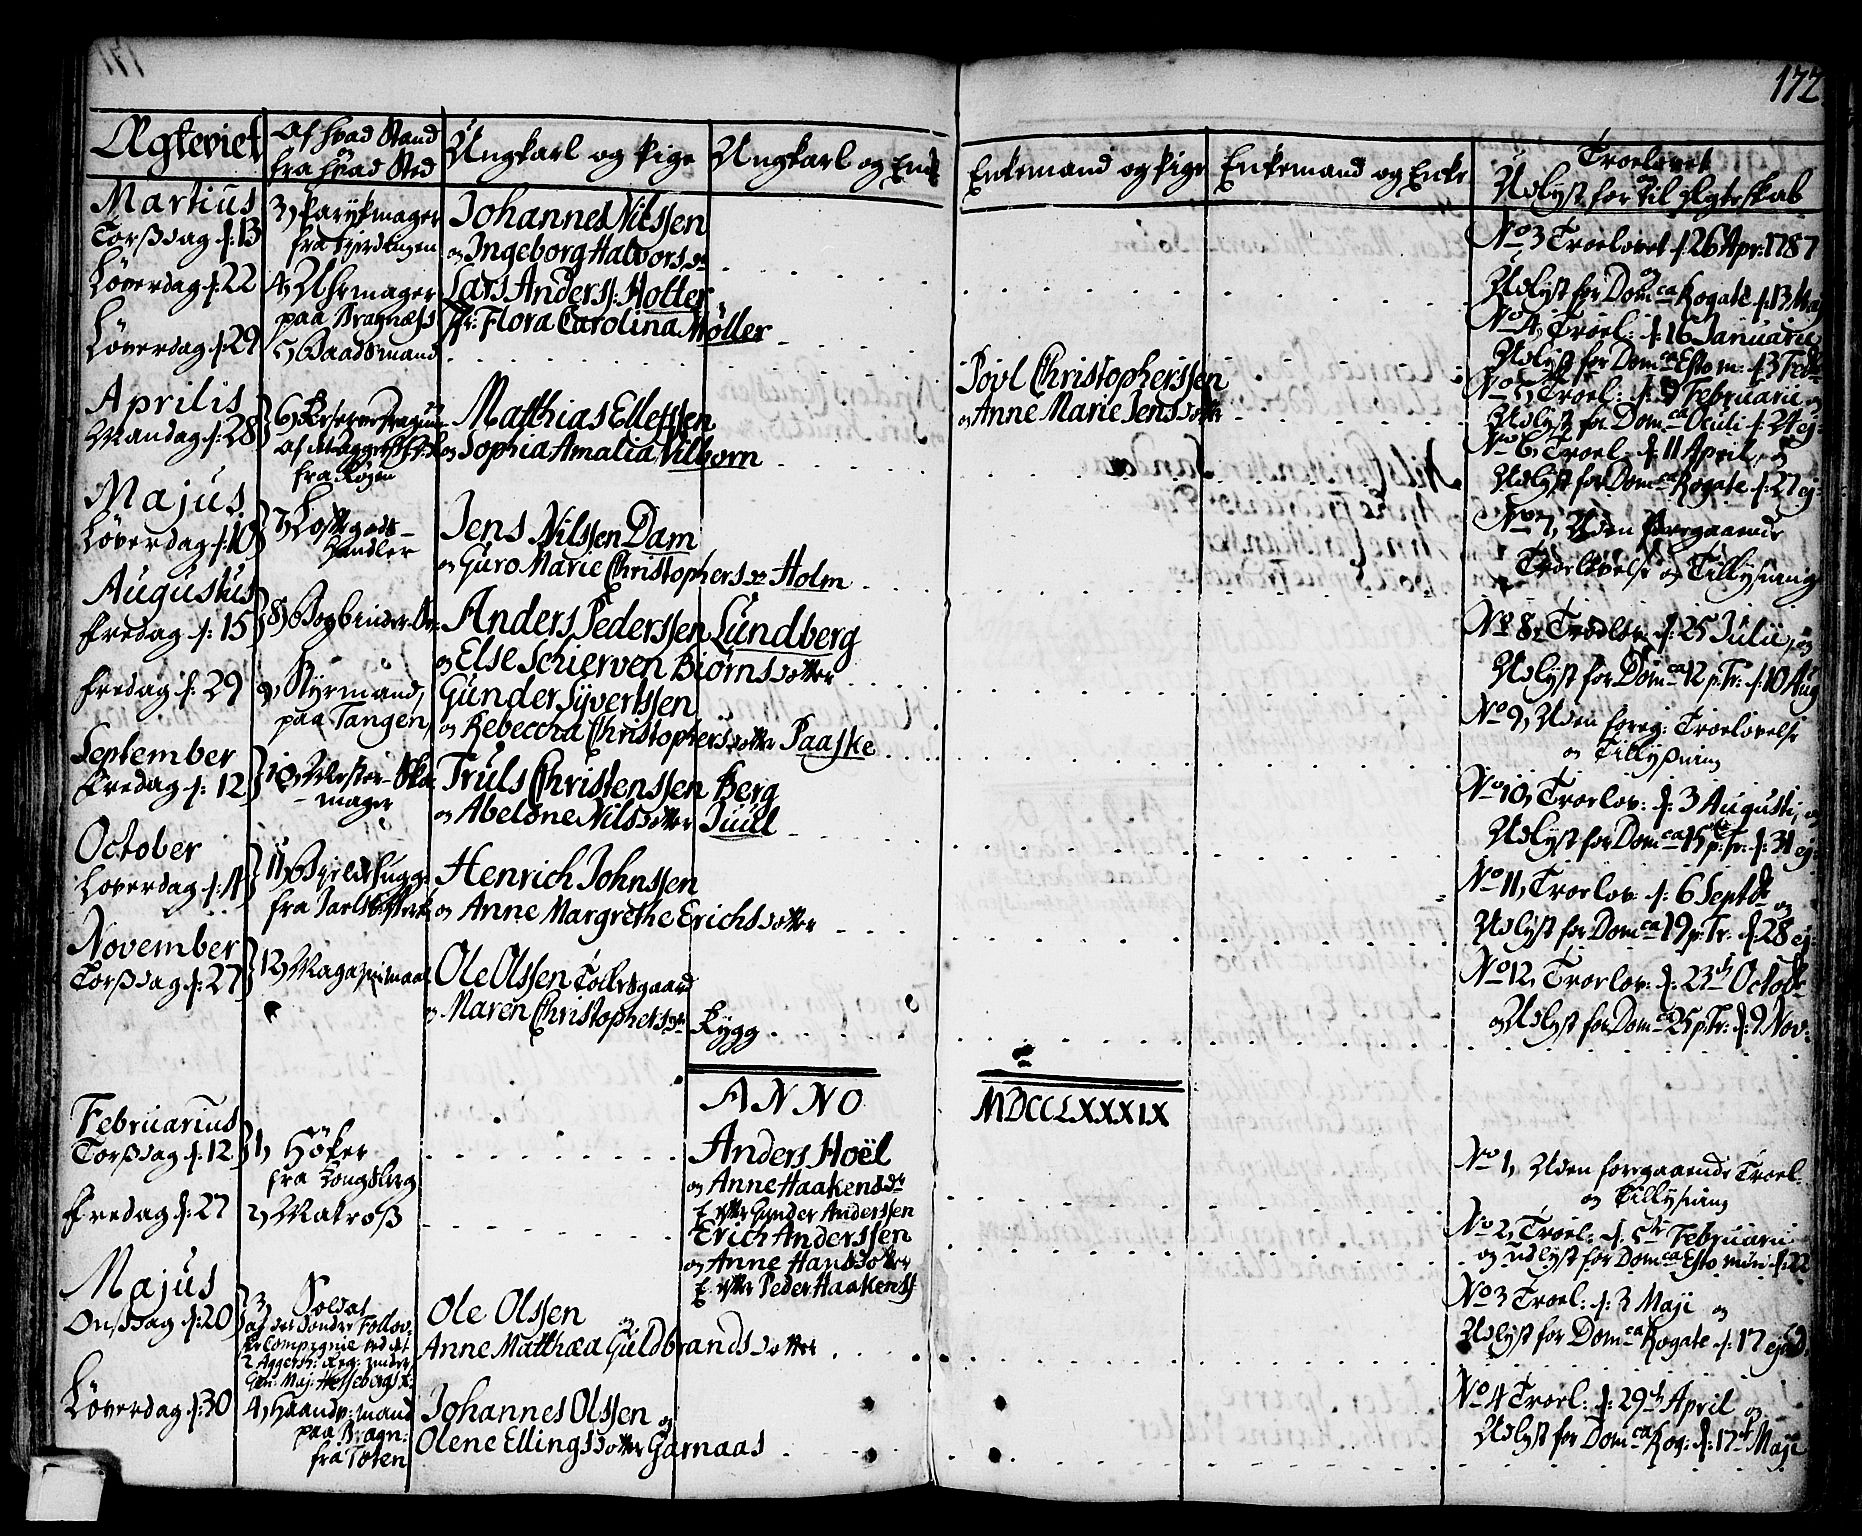 172.
Ægteviet
Af hvad Stand
og
fra hvad Sted
Ungkarl og Pige
Ungkarl og Enke
Enkemand og Pige
Enkemand og Enke
Troelovet
og
Udlyst for til Ægteskab
Martius
Torsdag d: 13
3, Parykmager
fra Fierdingen
Johannes Nilssen
og Ingeborg Halvorsdr
No 3 Troelovet d: 26 Apr: 1787
og
Udlyst for Domca Rogate d: 13 Maj
Løverdag d: 22
4, Uhrmager
paa Bragnæss
Lars Anderss: Holter,
Fr: Flora Carolina Møller
No 4, Troel: d: 16 Januarii
Udlyst for Domca Esto m: d: 3 Febr:
Løverdag d: 29
5, Baadsmand
Povl Christopherssen
og Anne Marie Jensdotter
No 5, Troel: d: Februarii og
Udlyst for Domca Oculi d: 24 ej:
Aprilis
Mandag d: 28
fra Røgen
Matthias Ellefssen
og Sophia Amalia Vilborn
No 6, Troel: d: 11 April, og
Udlyst for Domca Rogate d: 27 ej:
Majus
Løverdag d: 10
7,
Handler
Jens Nilssen Dam
og Guro Marie Christophersdr Holm
No 7, Uden Foregaaende
Troelovelse og Tillysning
Augustus
Fredag d: 15
8, Bogbinder
Anders Pederssen Lundberg
og Else Schierven Biørnsdotter
No 8, Troelov: d: 25 Julii, og
Udlyst for Domca 12 p: Tr: d: 10 Aug
Fredag d: 29
9, Styrmand,
paa Tangen,
Gunder Syvertssen
og Rebeccha Christophersdotter Paaske
No 9, Uden foreg: Troelovelse
og Tillysning
September
Fredag d: 12
10, Mester-Sko
-mager
Truls Christenssen Berg
og Abelone Nilsdotter Juul
No 10, Troelov: d: 3 Augusti, og
Udlyst for Domca 15 p: Tr: d: 31 ej:
October
Løverdag d: 11
11, Bielkhugger
fra
Henrich Johnssen
og Anne Margrethe Erichsdotter
No 11, Troelov: d: 6 Septbr og
Udlyst for Domca 19 p: Tr: d: 28 ej:
November
Torsdag d: 27
12, Magazin
Ole Olssen Tollesgaard
og Maren Christophersdr Rygg
No 12, Troelov: d: 23de Octobr
og Udlyst for Domca 25 p: Tr: d: 9 Nov:
ANNO
MDCCLXXXIX
Februarius
Torsdag d: 12
1, Høker
fra Kongsberg
Anders Hoël
og Anne Haakensdr
E: efter Gunder Anderssen
No 1, Uden foregaaende Troel:
og Tillysning
Fredag d: 27
2, Matros
Erich Anderssen
og Anne Hansdotter
E. efter Peder Haakenss
No 2, Troel: d: 5te Februarii
og udlyst for Domca Esto mihi d: 22
Majus
Onsdag d: 20
3, Soldat
af det Søndre Follov:
Compagnie ved det
2 Aggersh: Reg: under
Gen: Maj:
Ole Olssen
og
Anne Matthæa Guldbrandsdotter
No 3 Troel: d: 3 Maji og
Udlyst for Domca Rogate d: 17 ejusd.
Løverdag d: 30
4, Haandv:mand
paa Bragn:
fra Toten
Johannes Olssen og
Olene Ellingsdotter Garnaas
No 4 Troel: d: 29de April og
Udlyst for Domca Rog: d: 17de Maji